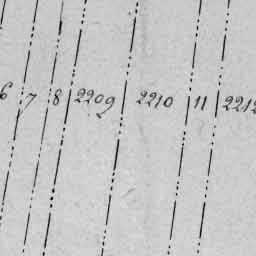 6 7 8 2209 2210 11 2212